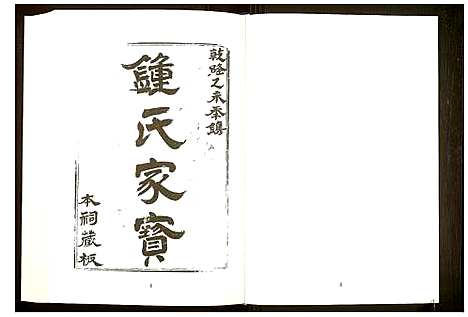 乾隆乙未季鐫
鍾氏家寶
本祠藏板